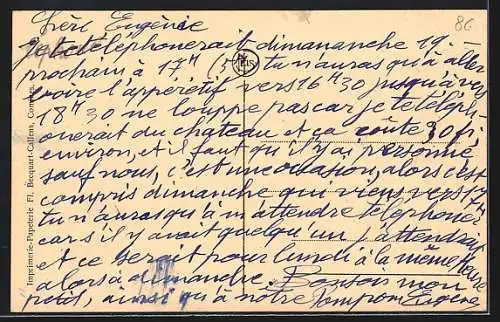 86
Chère Eugénie
je te téléphonerait dimananche 19 -
prochain à 17H (5 tu n'auras qu'à aller
voire l'appéretif vers 16H30 jusqu'à vers
18H30 ne louppe pas car je téléph-
onerait du chateau et ça coûte 30 f
environ, et il faut qu'il y ai personne
sauf nous, c'est une occasion, alors c'est
compris dimanche qui viens vers 17H
tu n'auras qu'à m'attendre téléphoner
car s'il y avait quelqu'un j'attendrai
et ce serait pour lundi à la même heure
alors à dimandre. Bonsoir mon
petit, ainsi qu'à notre Pompom Eugène
Imprimerie-Papeterie Fl. Becquart-Callens, Comines